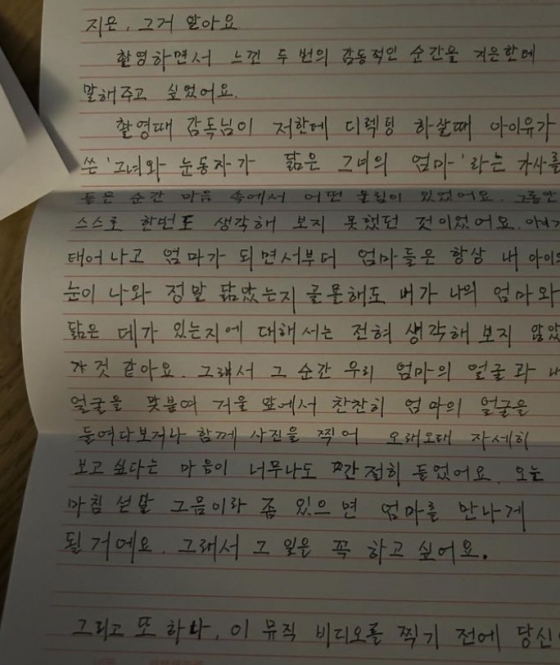 지은, 그거 알아요
촬영하면서 느낀 두 번의 감동적인 순간을 지은한테
말해주고 싶었어요.
촬영때 감독님이 저한테 디렉팅 하실때 아이유가
쓴 '그녀와 눈동자가 닮은 그녀의 엄마' 라는 가사를
들은 순간 마음 속에서 어떤 울림이 있었어요. 그동안
스스로 한번도 생각해 보지 못했던 것이었어요. 아이가
태어나고 엄마가 되면서부터 엄마들은 항상 내 아이의
눈이 나와 정말 닮았는지 골몰해도 내가 나의 엄마와
닮은 데가 있는지에 대해서는 전혀 생각해 보지 않았
것 같아요. 그래서 그 순간 우리 엄마의 얼굴과 내
얼굴을 맞붙여 거울 앞에서 찬찬히 엄마의 얼굴을
들여다보거나 함께 사진을 찍어 오래오래 자세히
보고 싶다는 마음이 너무나도 간절히 들었어요. 오늘
마침 섣달 그믐이라 좀 있으면 엄마를 만나게
될 거예요. 그래서 그 일은 꼭 하고 싶어요.
그리고 또 하나, 이 뮤직 비디오를 찍기 전에 당신